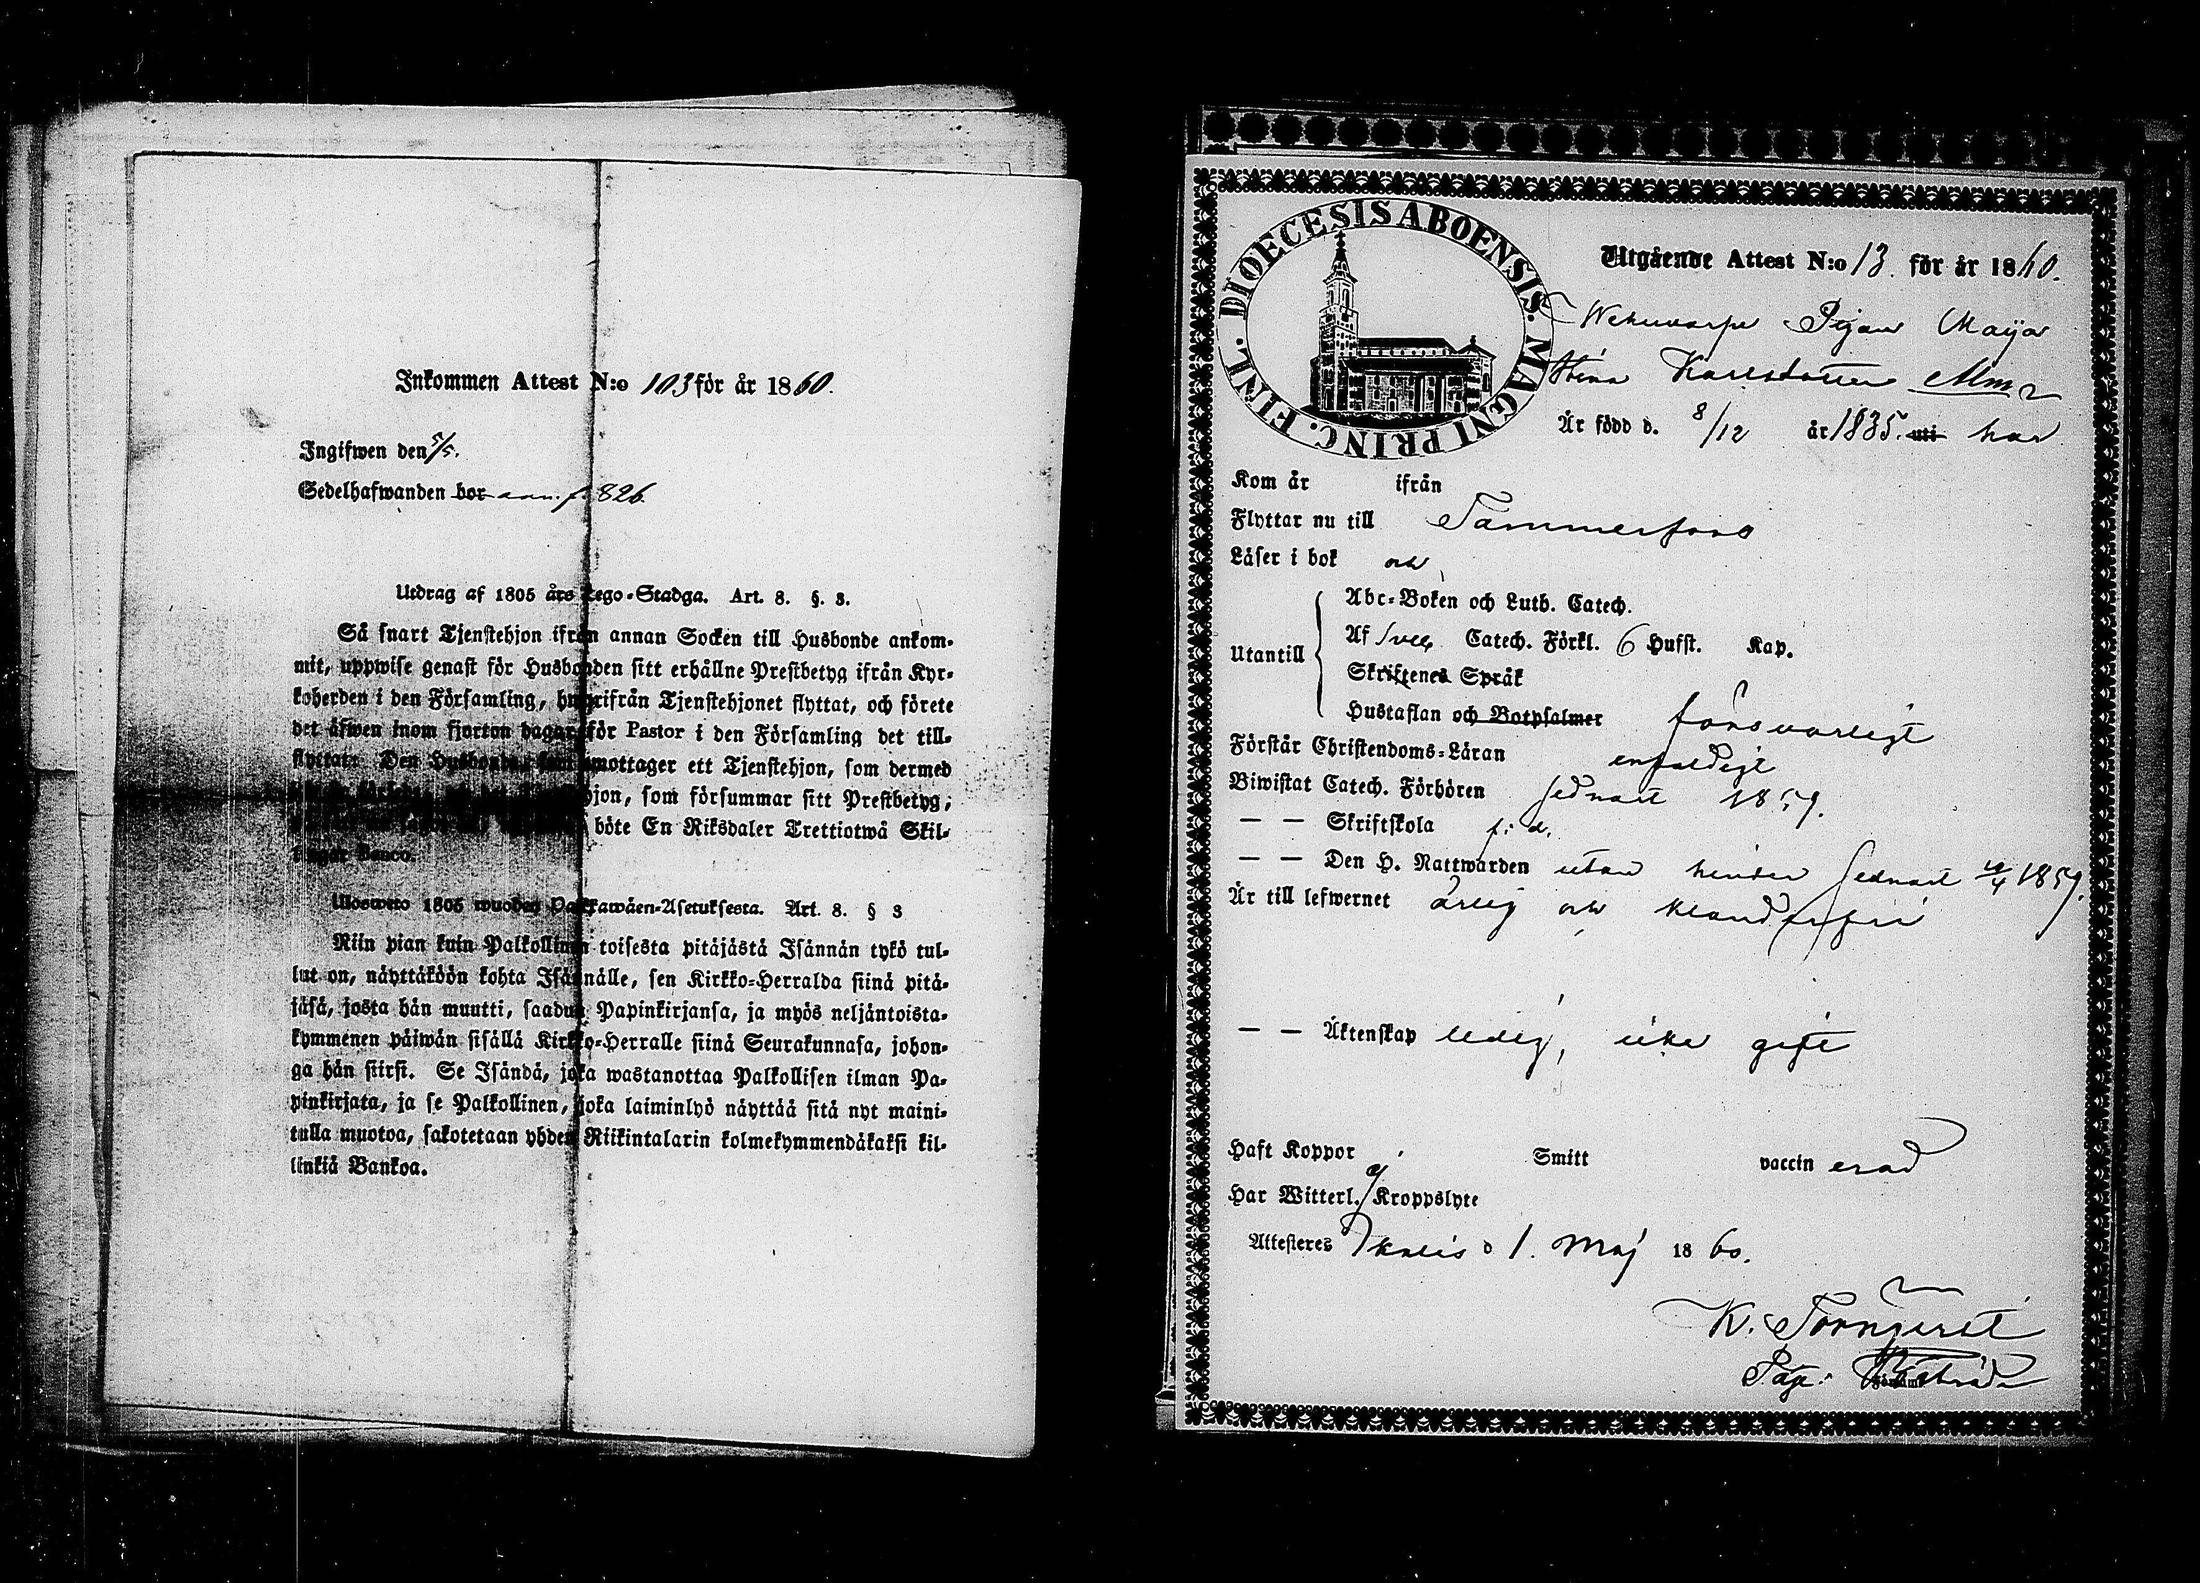 Inkommen Attest N:o 103 för år 1860.
Ingifwen den 5/5.
Sedelhafwanden bor ann. p. 826.
Utdrag af 1805 års Lego-Stadga. Art. 8. §. 3.
Så snart Tjenstehjon ifrån annan Socken till Husbonde ankom-
mit, uppwise genast för Husbonden sitt erhållne Prestbetyg ifrån Kyr-
koherden i den Församling, hwarifrån Tjenstehjonet flyttat, och förete
det äfwen inom fjorton dagar för Pastor i den Församling det till-
flyttat. Den Husbonde, som emottager ett Tjenstehjon, som dermed
hjon, som försummar sitt Prestbetyg,
böte En Riksdaler Trettiotwå Skil-
lingar Banco.
Ulosweto 1805 wuoden Palkkawäen-Asetuksesta. Art. 8. § 3
Niin pian kuin Palkollinen toisesta pitäjästä Isännän tykö tul-
lut on, näyttäköön kohta Isännälle, sen Kirkko-Herralda siinä pitä-
jäsä, josta hän muutti, saadun Papinkirjansa, ja myös neljäntoista-
kymmenen päiwän sisällä Kirkko-Herralle siinä Seurakunnasa, johon-
ga hän siirsi. Se Isändä, joka wastanottaa Palkollisen ilman Pa-
pinkirjata, ja se Palkollinen, joka laiminlyö näyttää sitä nyt maini-
tulla muotoa, sakotetaan yhden Riikintalarin kolmekymmendäkaksi kil-
linkiä Bankoa.
DIOECESIS ABOENSIS. MAGNI PRINC. FINL.
Utgående Attest N:o 13. för år 1860.
Pigan Maija
Stina Karlsdotter
Är född d. 8/12 år 1835. uti har
Kom år ifrån
Flyttar nu till Tammerfors
Läser i bok och
Abc-Boken och Luth. Catech.
Utantill
Af Sveb Catech. Förkl. 6 Hufst. Kap.
Skriftenes Språk
Hustaflan och Botpsalmer försvarligt
Förstår Christendoms-Läran enfaldigt
Biwistat Catech. Förhören sednast 1859.
— — Skriftskola
— — Den H. Nattwarden utan hinder sednast 1859.
Är till lefwernet ärlig och klanderfri
— — Äktenskap ledig, icke gift
Haft Koppor Smitt vaccin erad
Har Witterl. ej Kroppslyte
Attesteres Ikalis d 1. Maj 1860.
K.